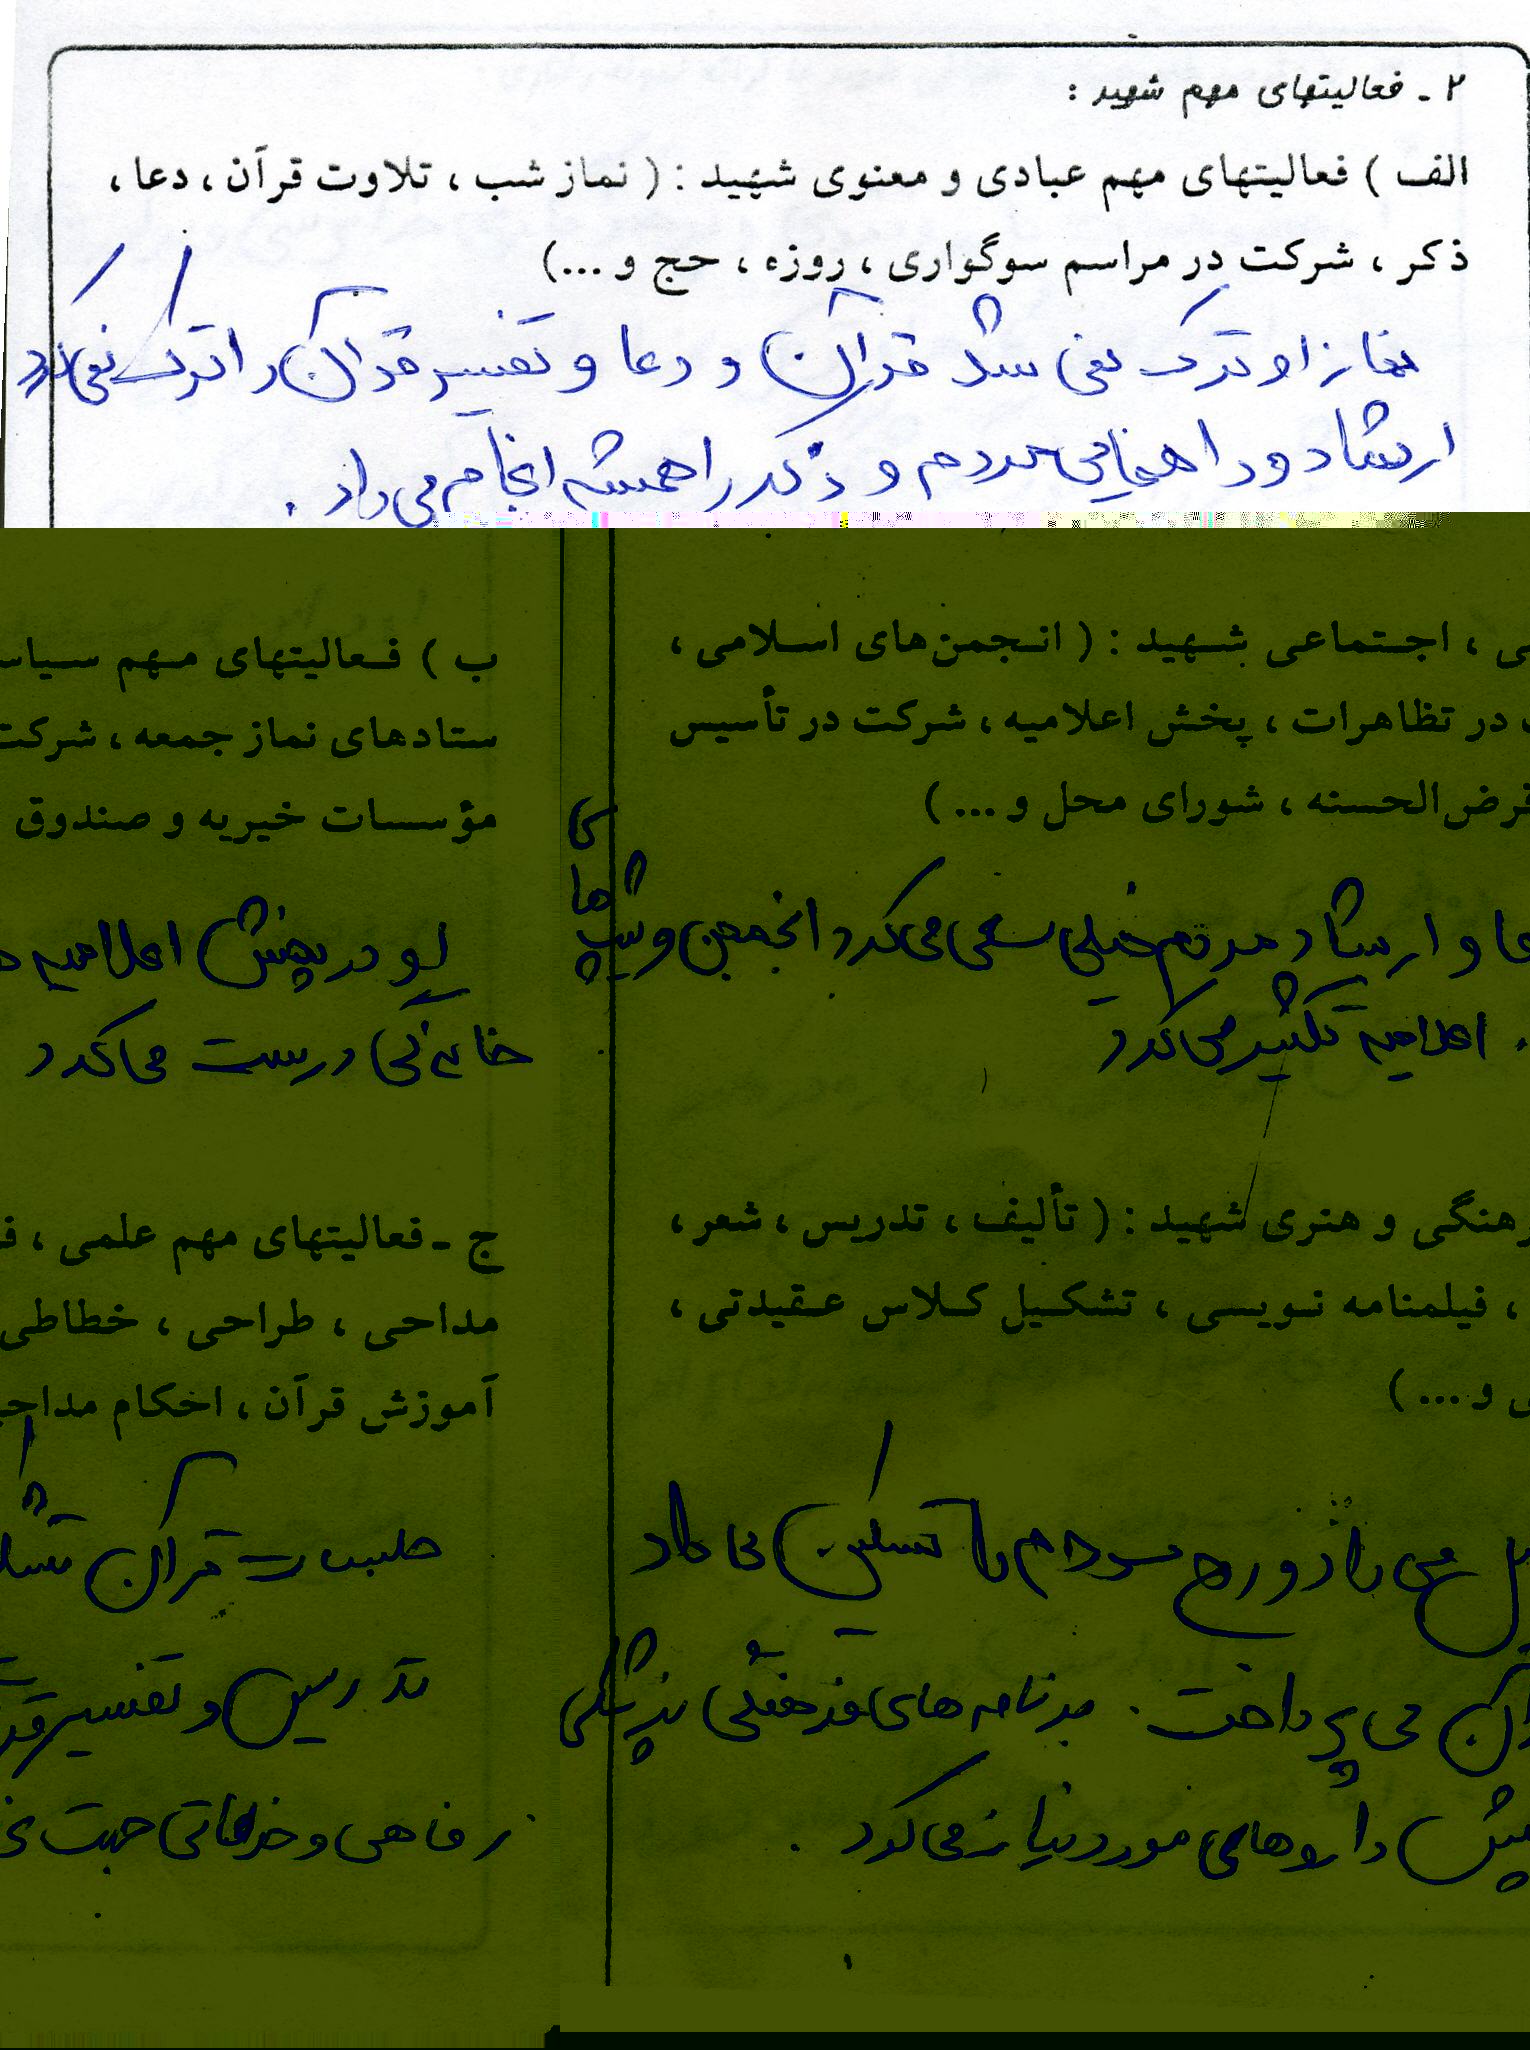 ۲ ـ فعالیتهای مهم شهید :
الف ) فعالیتهای مهم عبادی و معنوی شهید : ( نماز شب ، تلاوت قرآن ، دعا ،
ذکر ، شرکت در مراسم سوگواری ، روزه ، حج و ...)
نماز او ترک نمی شد قرآن و دعا و تفسیر قرآن را ترک نمی کرد
ارشاد و راهنمایی مردم و ذکر را همیشه انجام می داد .
ب ) فعالیتهای مهم سیاسی ، اجتماعی شهید : ( انجمن‌های اسلامی ،
ستادهای نماز جمعه ، شرکت در تظاهرات ، پخش اعلامیه ، شرکت در تأسیس
مؤسسات خیریه و صندوق قرض‌الحسنه ، شورای محل و ... )
او در پخش اعلامیه ها و ارشاد مردم خیلی سعی می کرد انجمن و
خانگی درست می کرد . اعلامیه تکثیر می کرد
ج ـ فعالیتهای مهم علمی ، فرهنگی و هنری شهید : ( تألیف ، تدریس ، شعر ،
مداحی ، طراحی ، خطاطی ، فیلمنامه نویسی ، تشکیل کلاس عقیدتی ،
آموزش قرآن ، احکام مداحی و ... )
جلسات قرآن تشکیل می داد و روح مردم را تسکین می داد
تدریس و تفسیر قرآن می پرداخت . برنامه های فرهنگی پزشکی
رفاهی و خدماتی جهت پخش داروهای مورد نیاز می کرد .